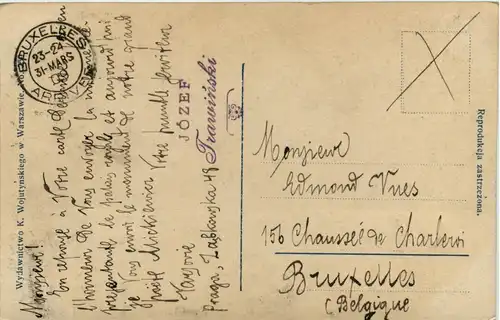 BRUXELLES
23-24
31·MARS
Wydawnictwo K. Wojutyńskiego w Warszawie.
Monsieur!
En réponse à Votre carte j'ai en
l'honneur de Vous envoyer la
représentante le palais royale et aujourd'hui
je Vous envoi le monument de notre grand
poète Mickiewicz. Votre humble serviteur
JÓZEF
Trawiński
Varsovie
Praga, Ząbkowska 48
Monsieur
Edmond Vues
156 Chaussée de Charleroi
Bruxelles
(Belgique
Reprodukcja zastrzeżona.